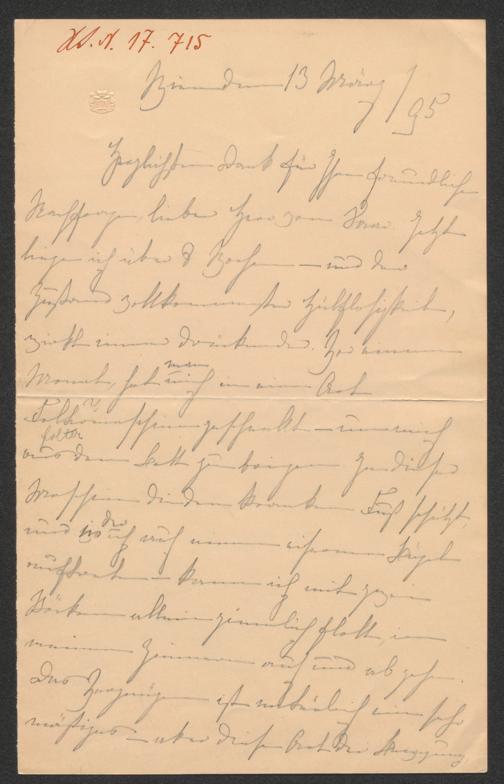 H.I.N. 17.715
Wien den 13 März
95
Herzlichsten Dank für Ihre freundliche
Nachfrage, lieber Herr von Jetzt
liege ich über 8 Wochen – und der
Zustand vollkommenster Hülflosigkeit,
wirkt immer drückender. Vor einem
Monat, hat man mich in eine Art
Folter geschnallt – um mich
folter
aus dem Bett zu bringen. In dieser
Maschine die den kranken Fuß schützt,
und in der ich auf einem eisernen Bügel
auftrete – kann ich mit zwei
Stöcken allein ziemlich flott, in
meinem Zimmer auf und ab gehen.
Das Vergnügen ist natürlich ein sehr
mäßiges – aber diese Art der Bewegung